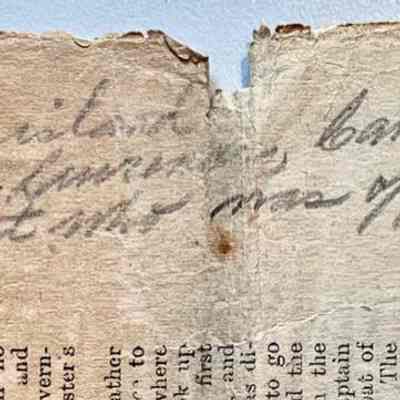 island Can
Lawrence,
t who was
and
vern-
ster's
ather
to
where
k up
first
and
as di-
to go
d the
n the
ptain
eat of
The